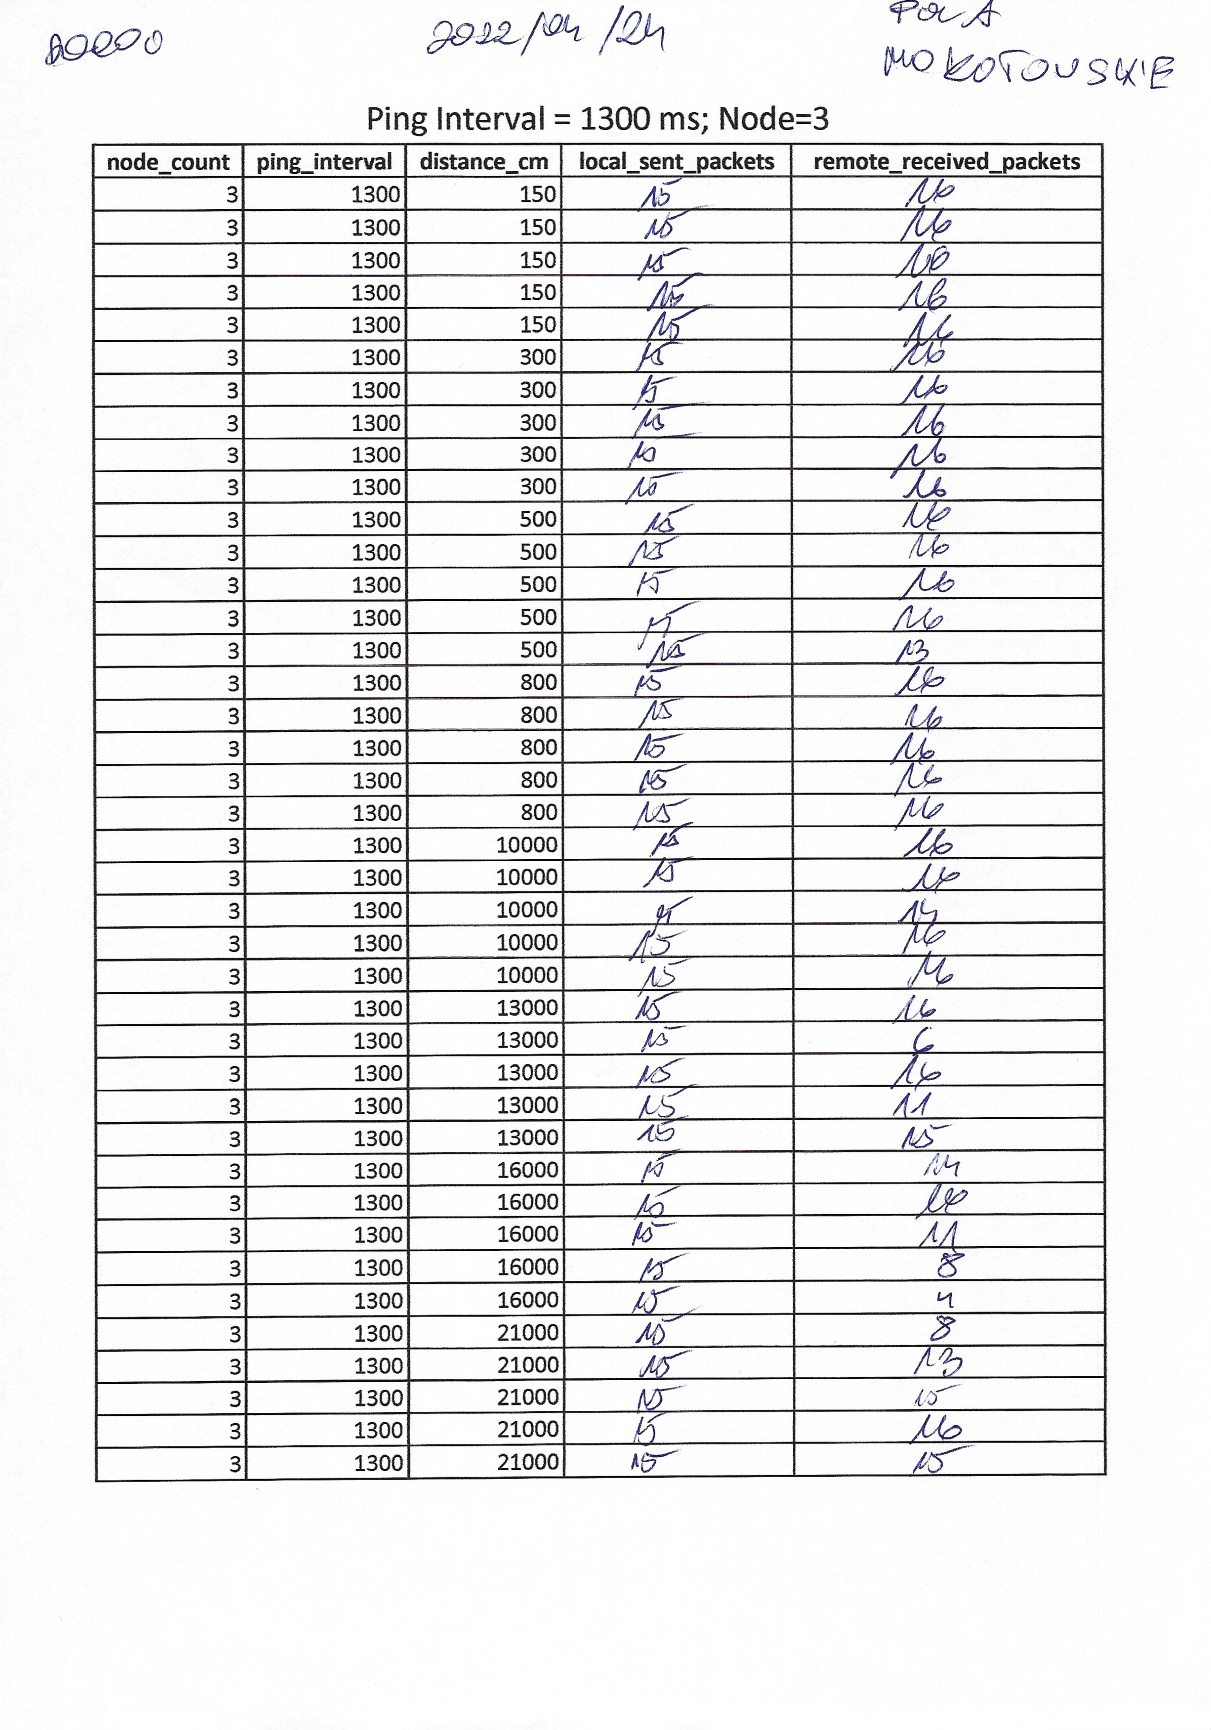 2022/04/24
POLA
MOKOTOWSKIE
Ping Interval = 1300 ms; Node=3
node_count ping_interval distance_cm local_sent_packets remote_received_packets
3 1300 150 15 16
3 1300 150 15 16
3 1300 150 15
3 1300 150 15 16
3 1300 150 15 16
3 1300 300 15 16
3 1300 300 15 16
3 1300 300 15 16
3 1300 300 15 16
3 1300 300 15 16
3 1300 500 15 16
3 1300 500 15 16
3 1300 500 15 16
3 1300 500 15 16
3 1300 500 15 13
3 1300 800 15 16
3 1300 800 15 16
3 1300 800 15 16
3 1300 800 15 16
3 1300 800 15 16
3 1300 10000 15 16
3 1300 10000 15 16
3 1300 10000 15 14
3 1300 10000 15 16
3 1300 10000 15 16
3 1300 13000 15 16
3 1300 13000 15 6
3 1300 13000 15 16
3 1300 13000 15 11
3 1300 13000 15 15
3 1300 16000 15 14
3 1300 16000 15 16
3 1300 16000 15 11
3 1300 16000 15 8
3 1300 16000 15 4
3 1300 21000 15 8
3 1300 21000 15 13
3 1300 21000 15 15
3 1300 21000 15 16
3 1300 21000 15 15